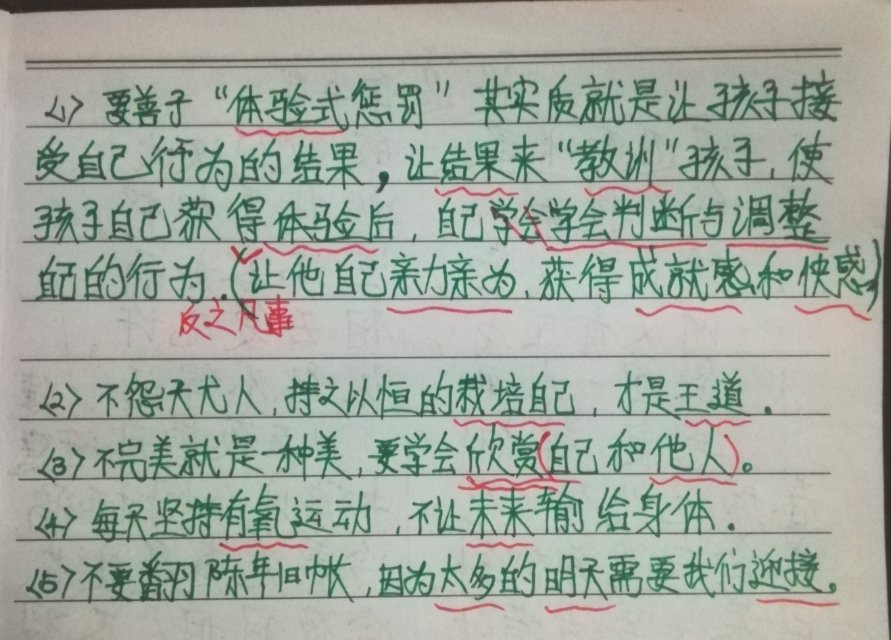 <1> 要善于“体验式惩罚”其实质就是让孩子接
受自己行为的结果，让结果来“教训”孩子，使
孩子自己获得体验后，自己学会学会判断与调整
自己的行为.(让他自己亲力亲为,获得成就感和快感)
反之凡事
<2> 不怨天尤人,持之以恒的栽培自己，才是王道.
<3> 不完美就是一种美,要学会欣赏(自己和他人)。
<4> 每天坚持有氧运动，不让未来输给身体.
<5> 不要翻阅陈年旧帐,因为太多的明天需要我们迎接。